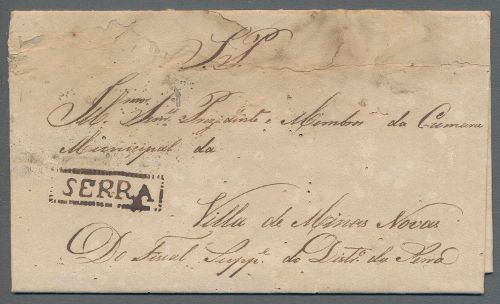 S. P.
Ill.mos Snr.es Prezidente e Membros da Camara
Municipal da
SERRA
Villa de Minas Novas
Do Fiscal Supp.e do Distr.o da